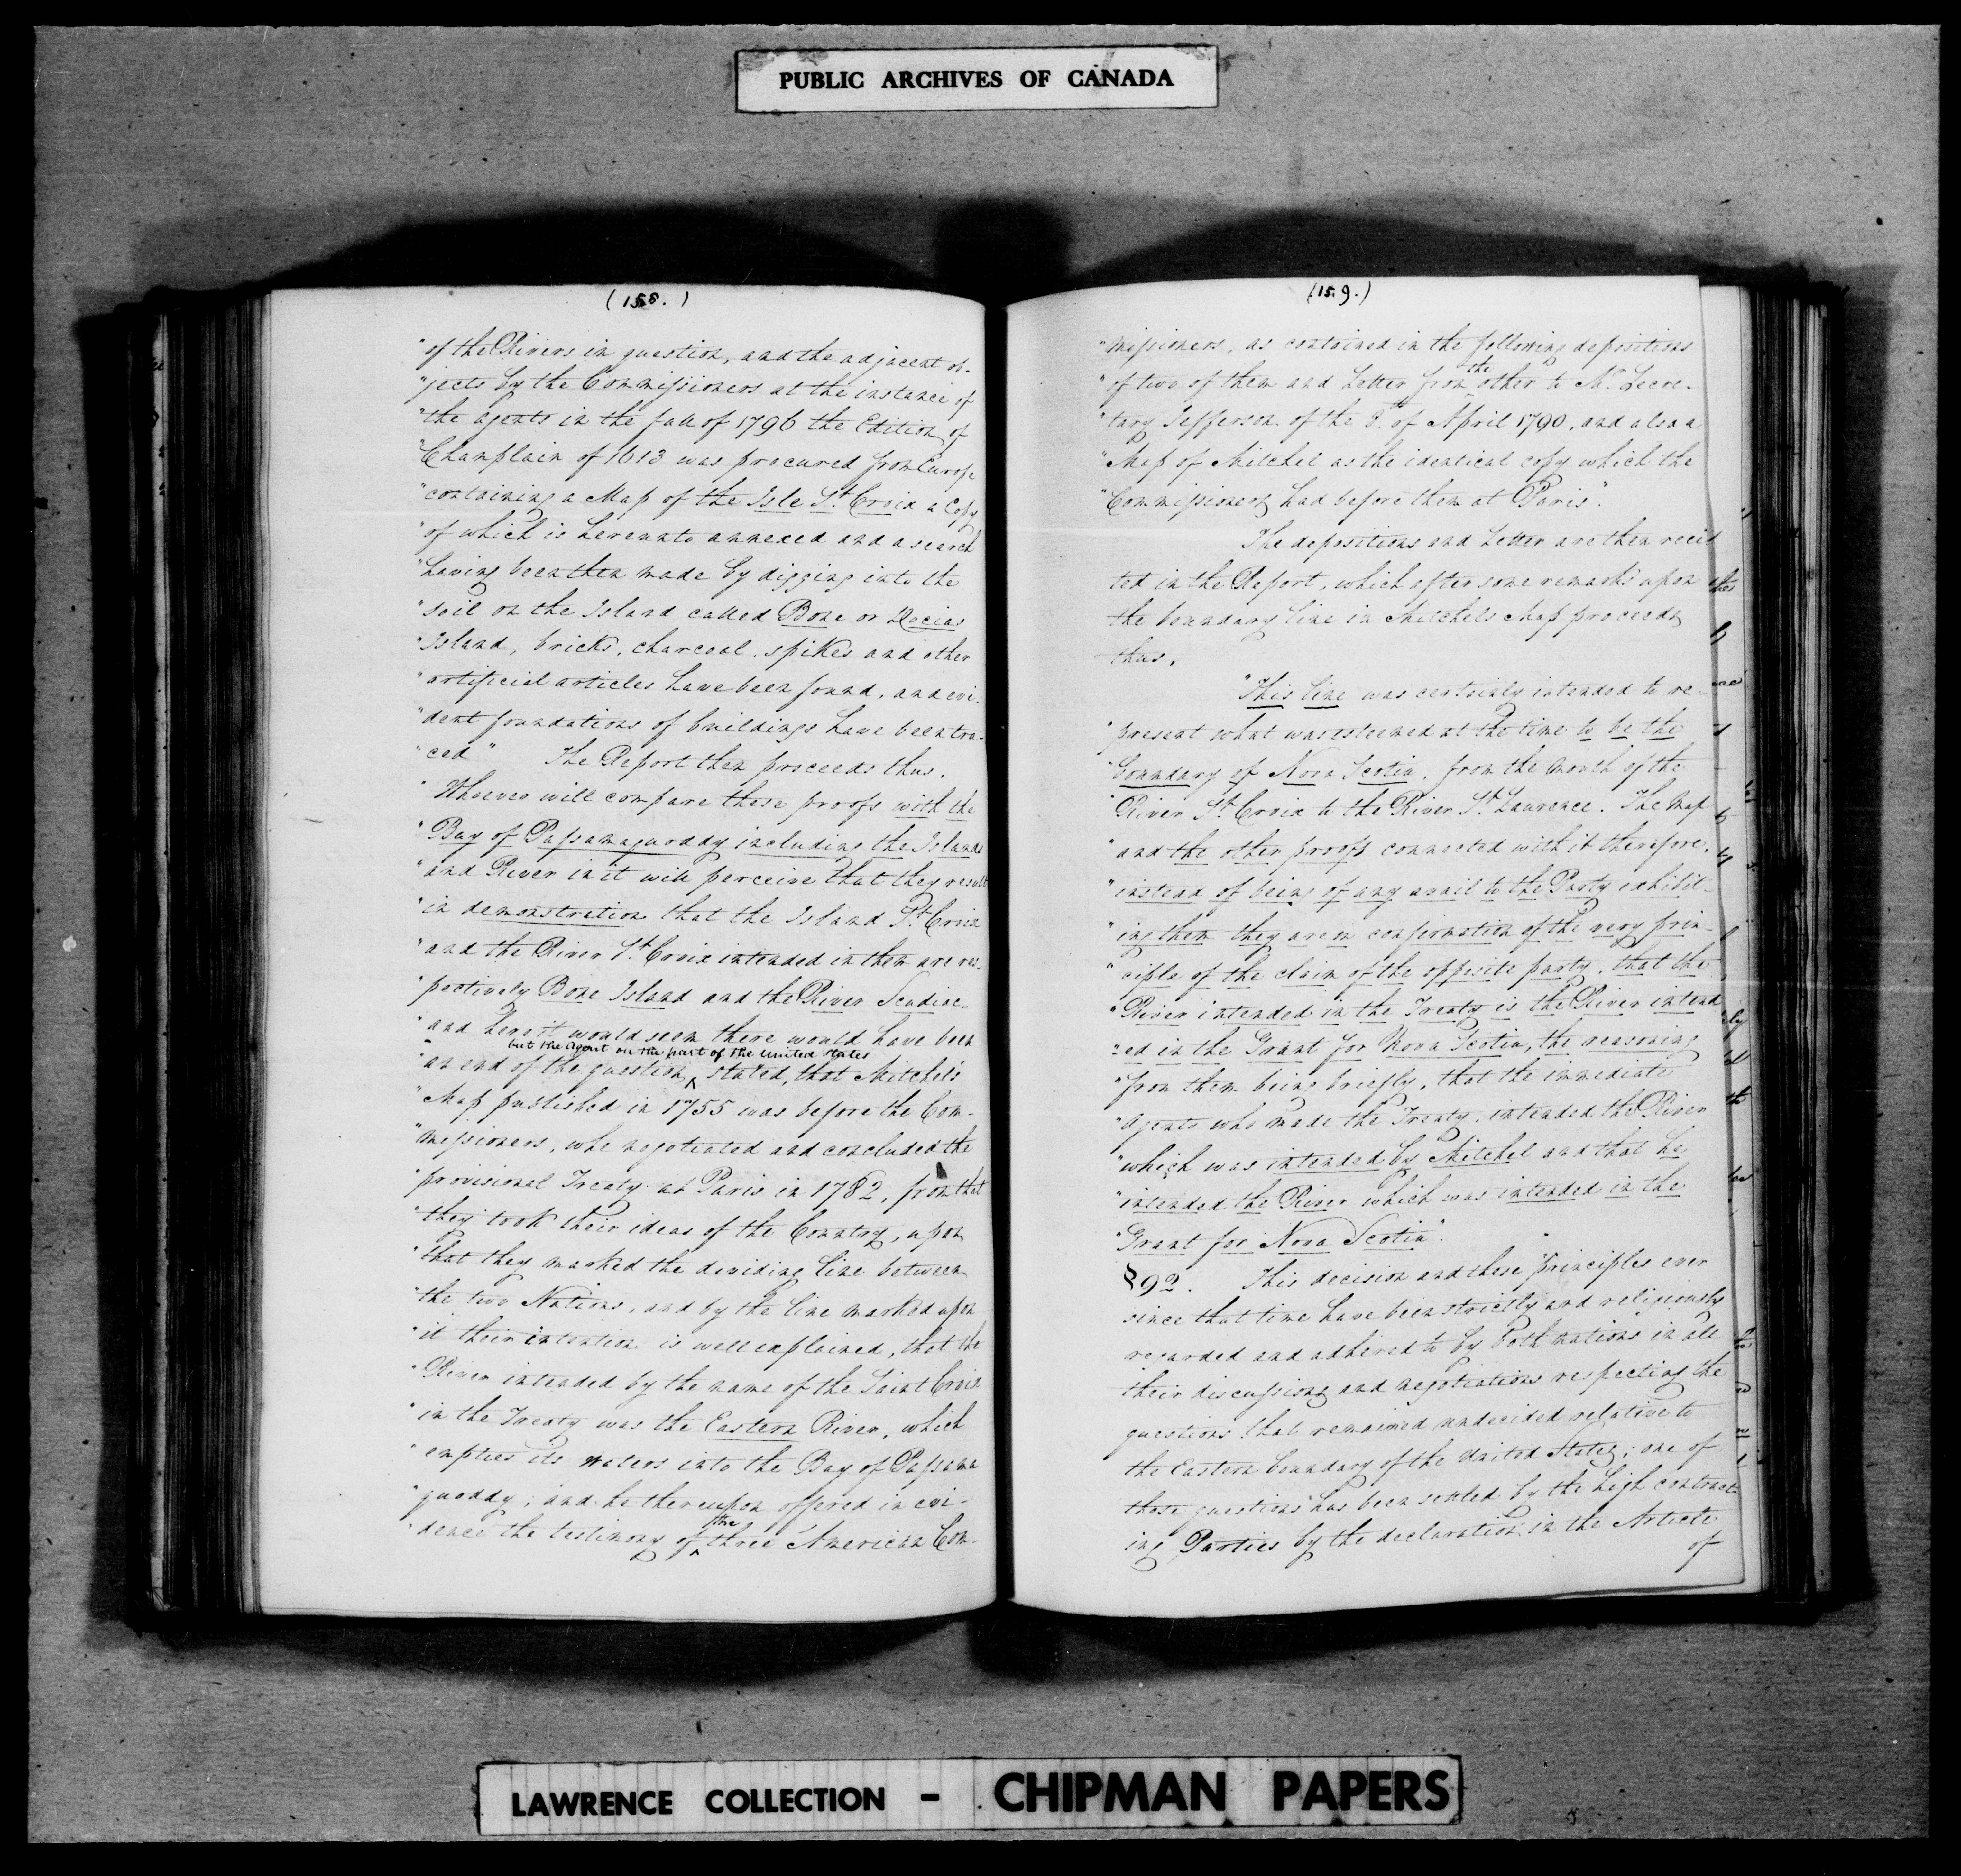 PUBLIC ARCHIVES OF CANADA
(158.)
"of the Rivers in question, and the adjacent ob-
"jects by the Commissioners at the instance of
"the agents in the fall of 1796 the Edition of
"Champlain of 1613 was procured from Europe
"containing a Map of the Isle St. Croix a Copy
"of which is hereunto annexed and a search
"having been then made by digging into the
"soil on the Island called Bone or Docias
"Island, bricks, charcoal, spikes and other
"artificial articles have been found, and evi-
"dent foundations of buildings have been tra-
"ced" The Report then proceeds thus.
"Whoever will compare these proofs with the
"Bay of Passamaquoddy including the Islands
"and River in it will perceive that they result
"in demonstration that the Island St. Croix
"and the River St. Croix intended in them are res-
"pectively Bone Island and the River Scudiac-
"and here it would seem there would have been
but the Agent on the part of the United States
"an end of the question, ‸ stated, that Mitchel's
"Map published in 1755 was before the Com-
"missioners, who negotiated and concluded the
"provisional Treaty at Paris in 1782, from that
"they took their ideas of the Country, upon
"that they marked the dividing line between
"the two Nations, and by the line marked upon
"it their intention is well explained, that the
"River intended by the name of the Saint Croix
"in the Treaty was the Eastern River, which
"empties its waters into the Bay of Passama
"quoddy; and he thereupon offered in evi-
the
"dence the testimony of ‸ three American Com-
(159.)
"missioners, as contained in the following depositions
the
"of two of them and Letter from other to Mr. Secre-
"tary Jefferson of the 8th of April 1790, and also a
"Map of Mitchel as the identical copy which the
"Commissioners had before them at Paris".
The depositions and Letter are then reci
ted in the Report, which after some remarks upon
the boundary line in Mitchels Map proceeds
thus,
"This line was certainly intended to re-
"present what was esteemed at the time to be the
"boundary of Nova Scotia, from the mouth of the
"River St. Croix to the River St. Laurence. The Map
"and the other proofs connected with it therefore,
"instead of being of any avail to the Party exhibit-
"ing them they are in confirmation of the very prin-
"ciple of the claim of the opposite party, that the
"River intended in the Treaty is the River intend
"ed in the Grant for Nova Scotia, the reasoning
"from them being briefly, that the immediate
"Agents who made the Treaty, intended the River
"which was intended by Mitchel and that he
"intended the River which was intended in the
"Grant for Nova Scotia".
§92. This decision and these principles ever
since that time have been strictly and religiously
regarded and adhered to by both nations in all
their discussions and negotiations respecting the
questions that remained undecided relative to
the Eastern boundary of the United States; one of
those questions has been settled by the high contract-
ing Parties by the declaration in the Article
of
LAWRENCE COLLECTION - CHIPMAN PAPERS